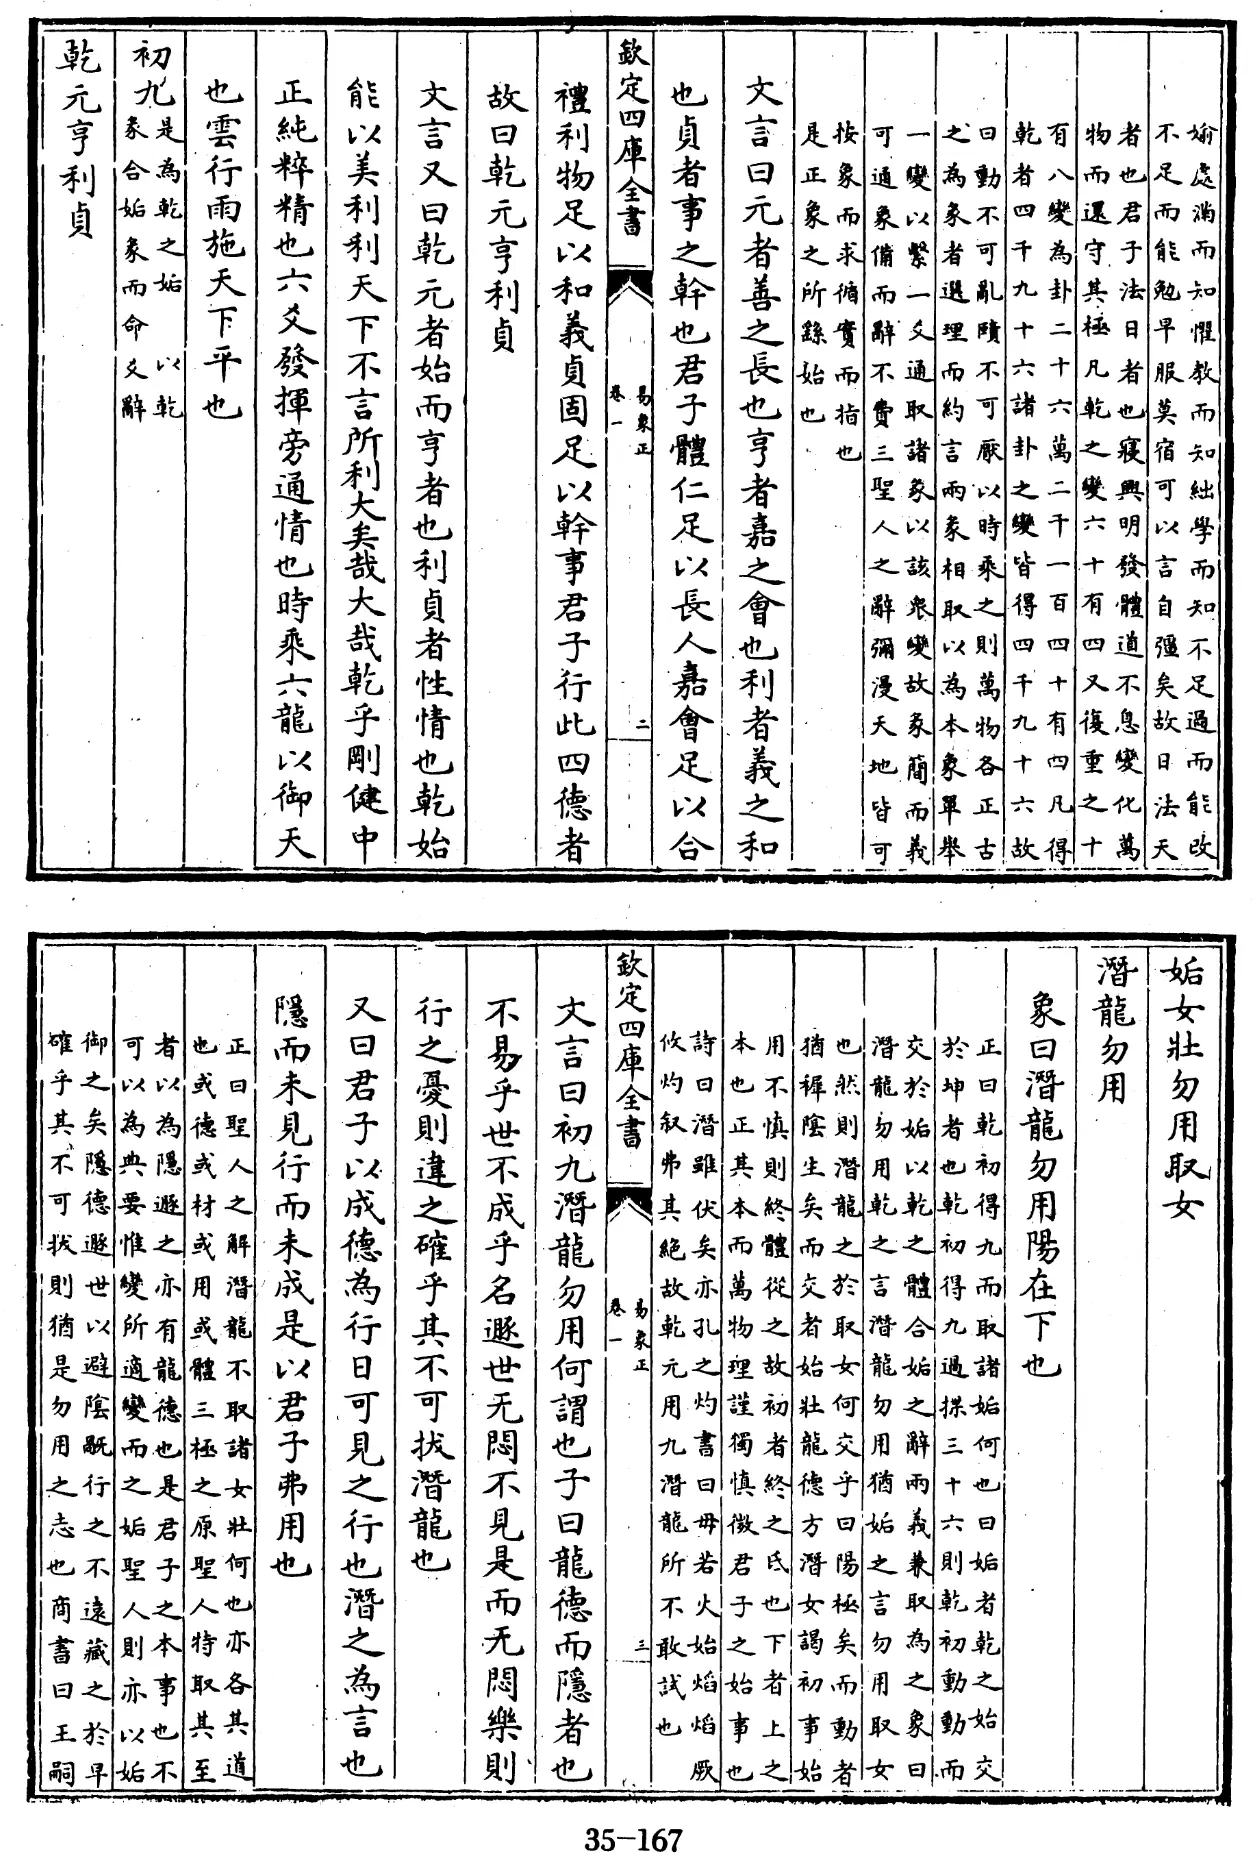 媮處滿而知懼教而知絀學而知不足過而能改
不足而能勉早服莫宿可以言自彊矣故日法天
者也君子法日者也寢興明發體道不息變化萬
物而還守其極凡乾之變六十有四又復重之十
有八變為卦二十六萬二千一百四十有四凡得
乾者四千九十六諸卦之變皆得四千九十六故
曰動不可亂賾不可厭以時乘之則萬物各正古
之為象者選理而約言兩象相取以為本象單舉
一變以繫一爻通取諸象以該衆變故象簡而義
可通象備而辭不費三聖人之辭彌漫天地皆可
按象而求循實而指也
是正象之所繇始也
文言曰元者善之長也亨者嘉之會也利者義之和
也貞者事之幹也君子體仁足以長人嘉會足以合
欽定四庫全書
易象正
卷一
二
禮利物足以和義貞固足以幹事君子行此四德者
故曰乾元亨利貞
文言又曰乾元者始而亨者也利貞者性情也乾始
能以美利利天下不言所利大矣哉大哉乾乎剛健中
正純粹精也六爻發揮旁通情也時乘六龍以御天
也雲行雨施天下平也
初九是為乾之姤以乾
彖合姤彖而命爻辭
乾元亨利貞
姤女壯勿用取女
潛龍勿用
象曰潛龍勿用陽在下也
正曰乾初得九而取諸姤何也曰姤者乾之始交
於坤者也乾初得九過揲三十六則乾初動動而
交於姤以乾之體合姤之辭兩義兼取為之象曰
潛龍勿用乾之言潛龍勿用猶姤之言勿用取女
也然則潛龍之於取女何交乎曰陽極矣而動者
猶稺陰生矣而交者始壯龍德方潛女謁初事始
用不慎則終體從之故初者終之氐也下者上之
本也正其本而萬物理謹獨慎微君子之始事也
詩曰潛雖伏矣亦孔之灼書曰毋若火始焰焰厥
攸灼叙弗其絕故乾元用九潛龍所不敢試也
欽定四庫全書
易象正
卷一
三
文言曰初九潛龍勿用何謂也子曰龍德而隱者也
不易乎世不成乎名遯世无悶不見是而无悶樂則
行之憂則違之確乎其不可拔潛龍也
又曰君子以成德為行日可見之行也潛之為言也
隱而未見行而未成是以君子弗用也
正曰聖人之解潛龍不取諸女壯何也亦各其道
也或德或材或用或體三極之原聖人特取其至
者以為隱遯之亦有龍德也是君子之本事也不
可以為典要惟變所適變而之姤聖人則亦以姤
御之矣隱德遯世以避陰翫行之不遠藏之於早
確乎其不可拔則猶是勿用之志也商書曰王嗣
35-167